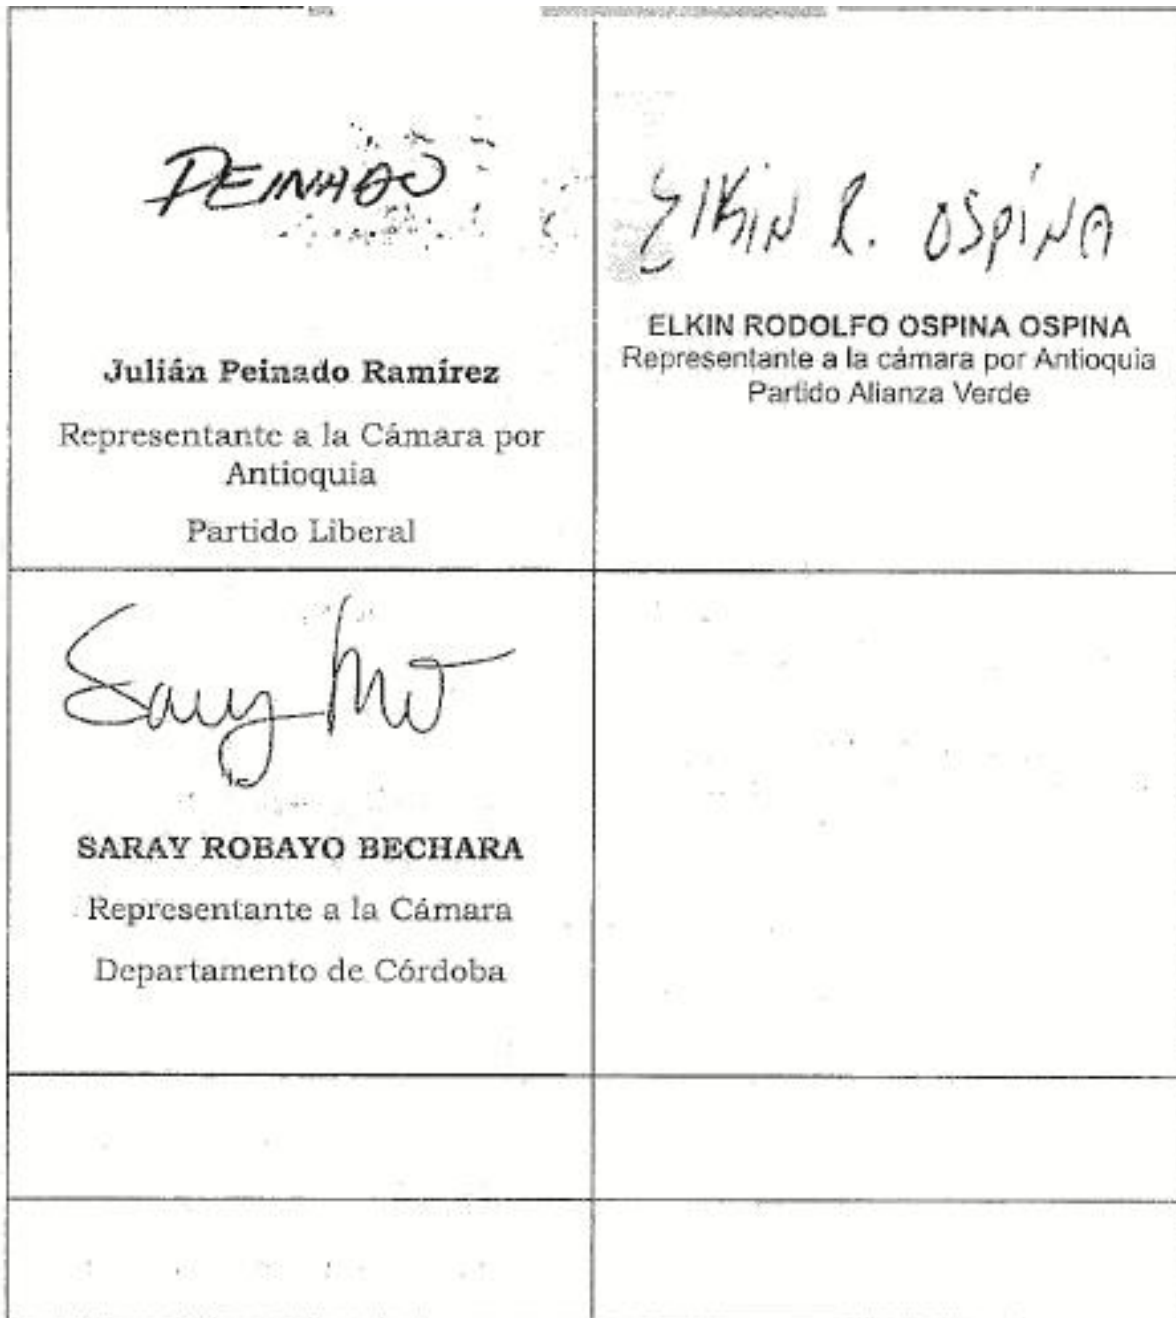 PEINADO
Julián Peinado Ramírez
Representante a la Cámara por
Antioquia
Partido Liberal
Elkin R. OSPINA
ELKIN RODOLFO OSPINA OSPINA
Representante a la cámara por Antioquia
Partido Alianza Verde
Saray
SARAY ROBAYO BECHARA
Representante a la Cámara
Departamento de Córdoba